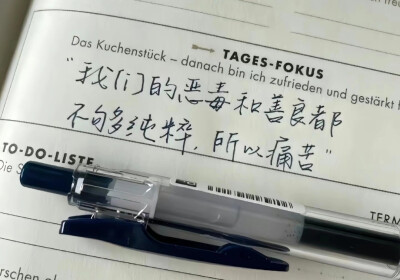 freu
TAGES-FOKUS
Das Kuchenstück – danach bin ich zufrieden und gestärkt f
"我(们)的恶毒和善良都
不够多纯粹,所以痛苦"
TO-DO-LISTE
Die S
TERM
rschen